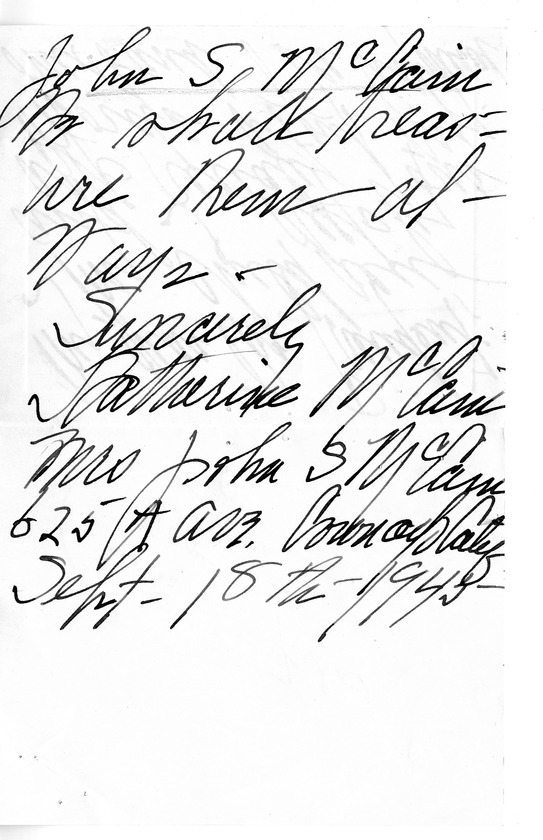 John S. McCain
I shall treas=
ure them al-
ways -
Sincerely
Katherine McCain
Mrs John S McCain
625 A Ave. Coronado Calif
Sept - 18th - 1945-